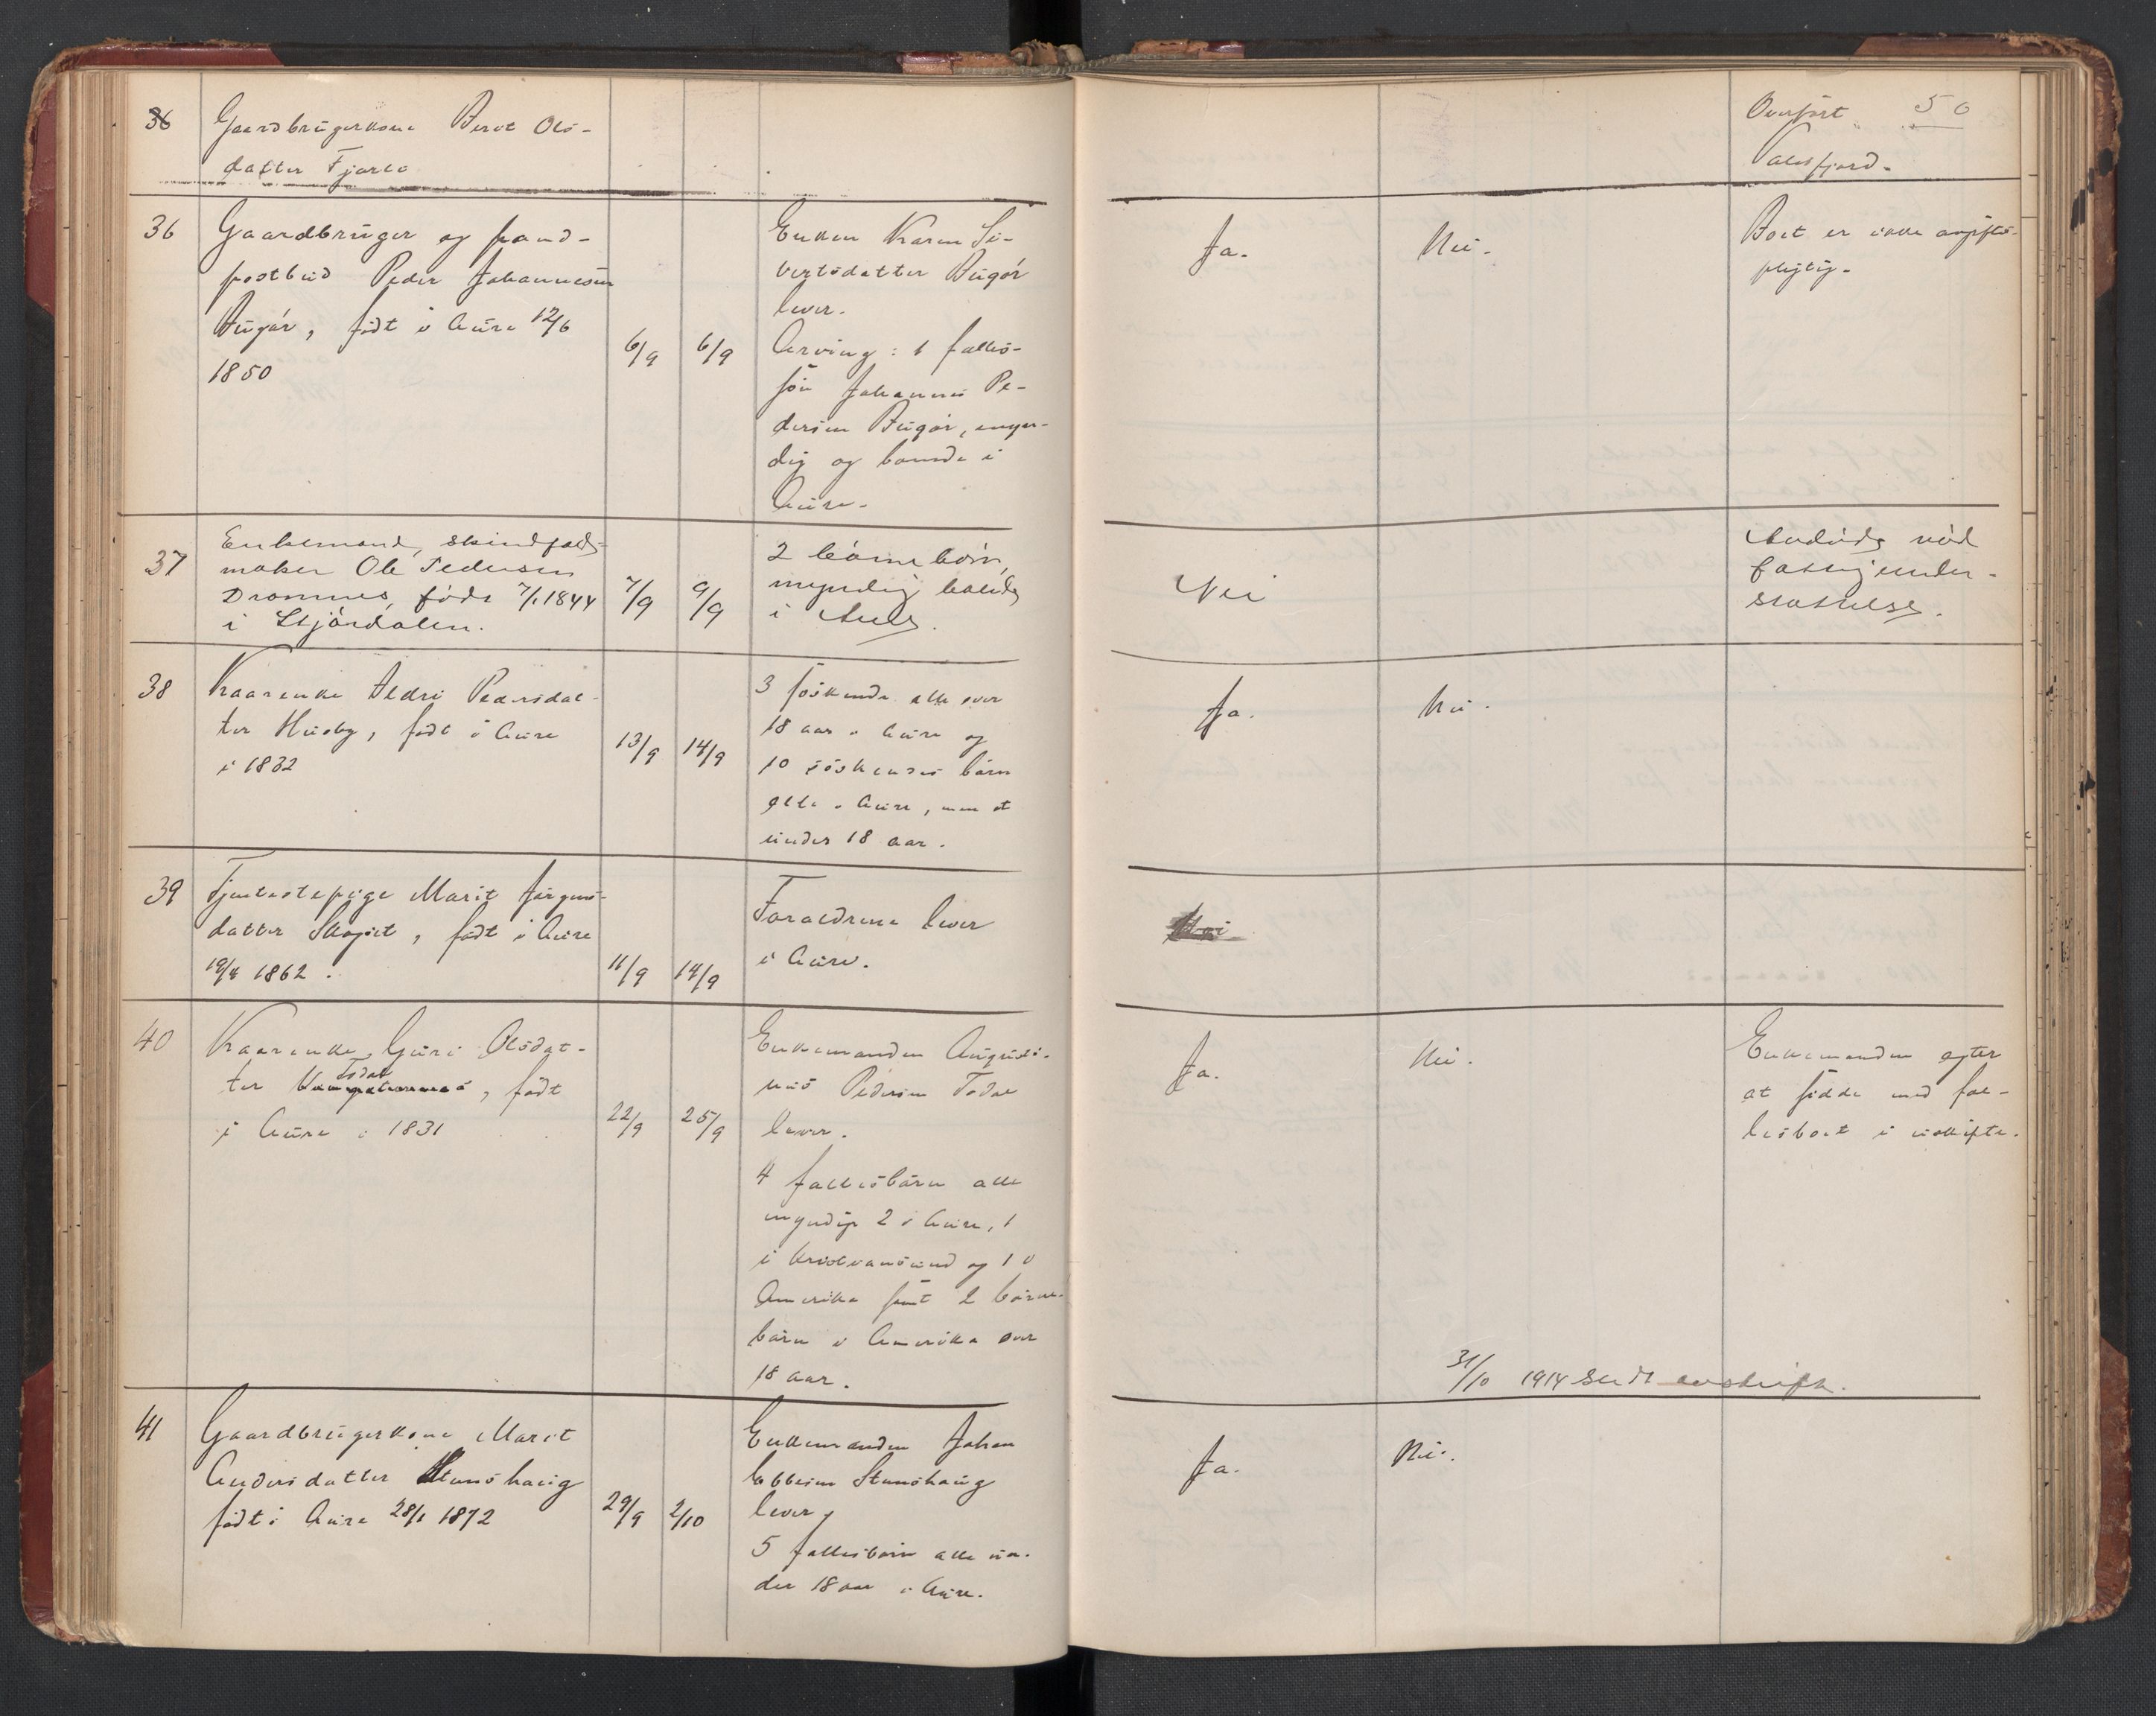 36 Gaardbrugerkone Beret Ols-
datter Fjorli
Overført 50
Valsfjord.
36 Gaardbruger og
postbud Peder Johannesen
Bugør, født i Aure 12/6
1850
6/9 6/9
Enken Karen Si-
vertsdatter Bugør
lever.
Arving: 1 fælles-
søn Johannes Pe-
dersen Bugør, myn-
dig og boende i
Aure.
Ja. Nei.
Boet er ikke avgifts-
pligtig.
37 Enkemand, skindfeld-
maker Ole Pedersen
Dromnes, født 7/1 1844
i Stjørdalen.
7/9 9/9
2 børnebørn,
myndig
i Aure.
Nei
nød
fattigunder-
støttelse.
38 Kaarenke Aldri Pedersdat-
ter Husby, født i Aure
i 1832
13/9 14/9
3 søskende alle over
18 aar i Aure og
10 søskendes børn
alle i Aure, men et
under 18 aar.
Ja. Nei.
39 Tjenestepige Marit Jørgens-
datter Skogset, født i Aure
19/4 1862.
11/9 14/9
Forældrene lever
i Aure.
Nei
40 Kaarenke Guri Olsdat-
Todal
ter, født
i Aure i 1831
22/9 25/9
Enkemanden Augusti-
nus Pedersen Todal
lever.
4 fællesbørn alle
myndige 2 i Aure, 1
i Kristiansund og 1 i
Amerika samt 2 børne-
børn i Amerika over
18 aar.
Ja. Nei.
Enkemanden agter
at sidde med fæl-
lesboet i uskifte.
31/10 1914 sendt avskrift.
41 Gaardbrugerkone Marit
Andersdatter Stenshaug
født i Aure 28/1 1872
29/9 2/10
Enkemanden Johan
Stenshaug
lever,
5 fællesbørn alle un-
der 18 aar i Aure.
Ja. Nei.